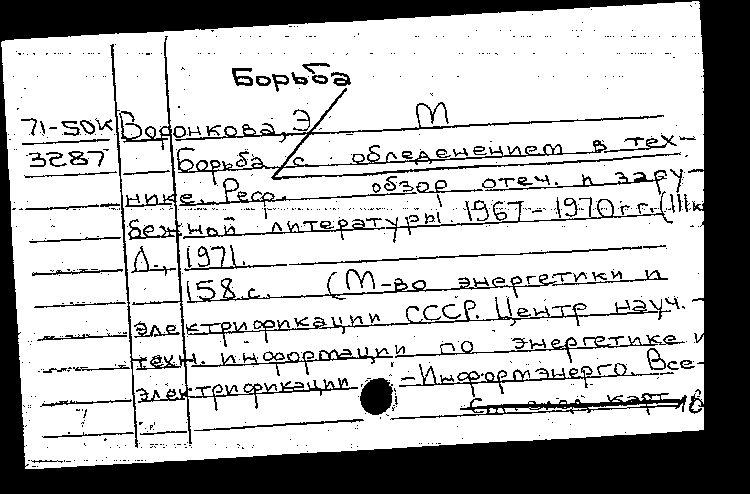 Борьба
71-50К Воронкова, Э М
3287 Борьба с обледенением в тех-
нике. Реф. обзор отеч. и зару-
бежной литературы 1967-1970 гг. (III
Л., 1971.
158 с. (М-во энергетики и
электрификации СССР. Центр науч.-
техн. информации по энергетике и
электрификации -Информэнерго. Все-
См. след. карт. 18